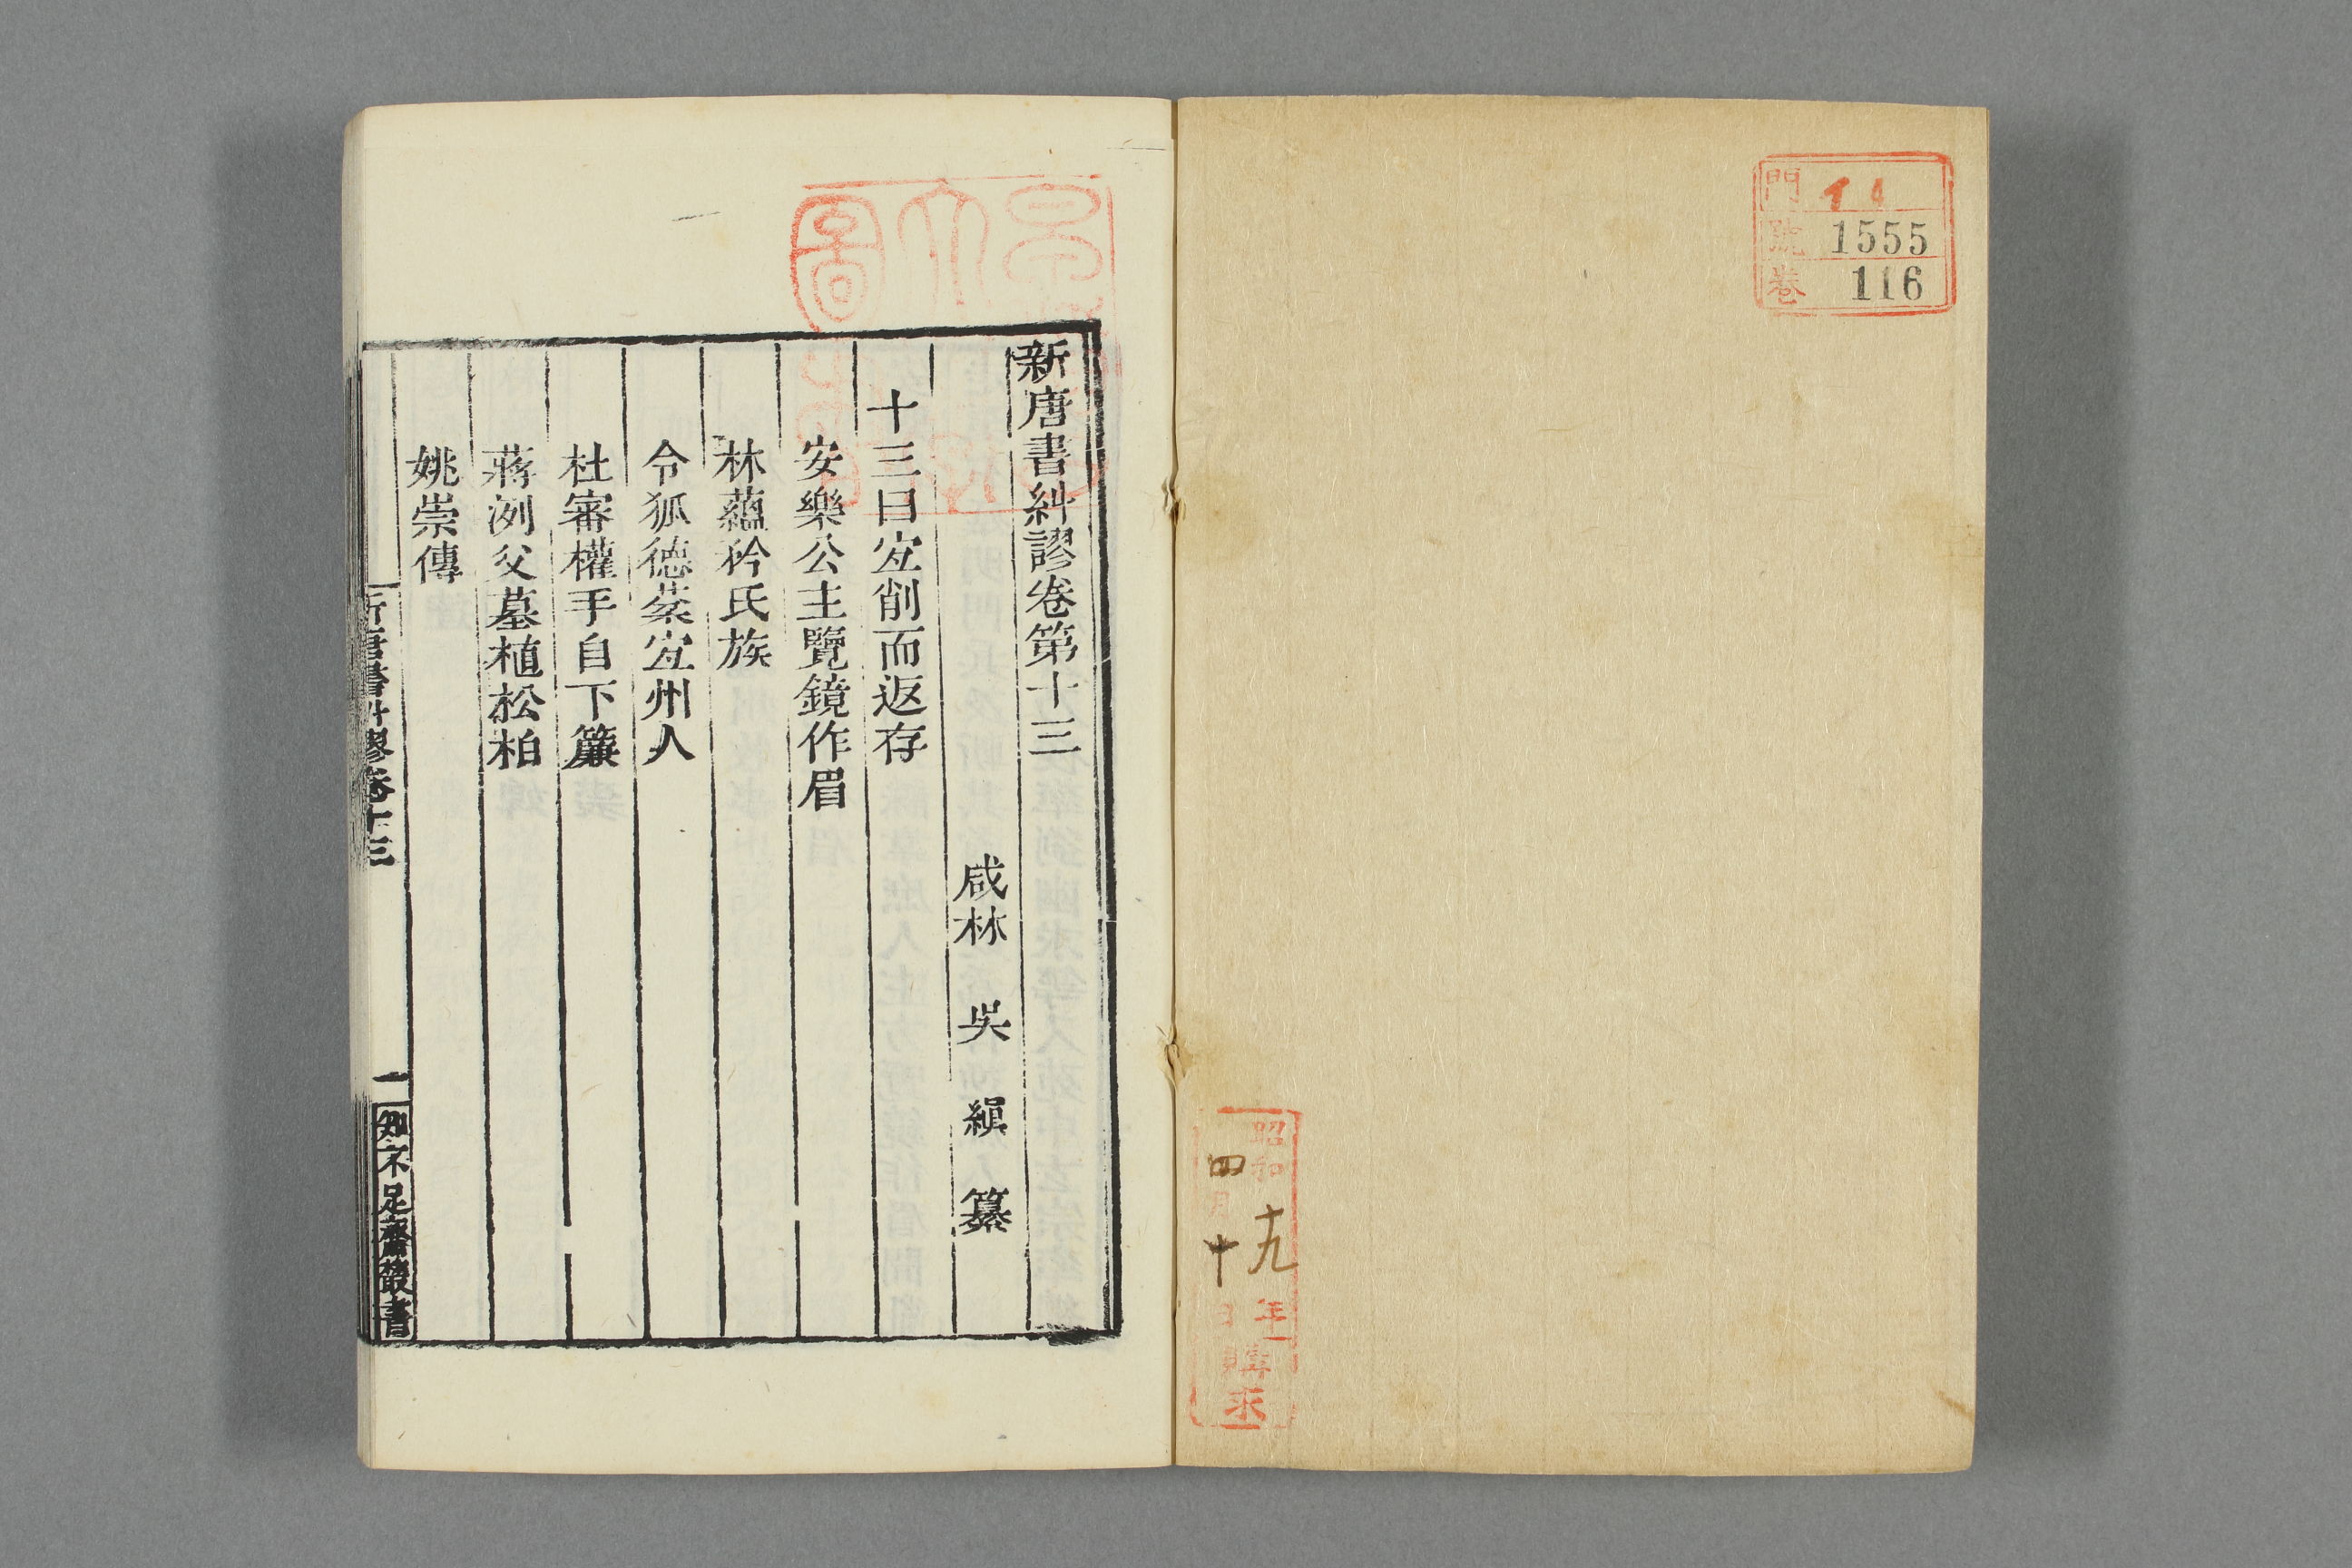 門 イ 4
號 1555
卷 116
昭和十九年
四月十日
購求
新唐書糾謬卷第十三
咸林 吳 縝 纂
十三曰宐削而返存
安樂公主覽鏡作眉
林蘊矜氏族
令狐德棻宐州人
杜審權手自下簾
蔣洌父墓植松柏
姚崇傳
新唐書糾謬卷十三
一
知不足齋叢書